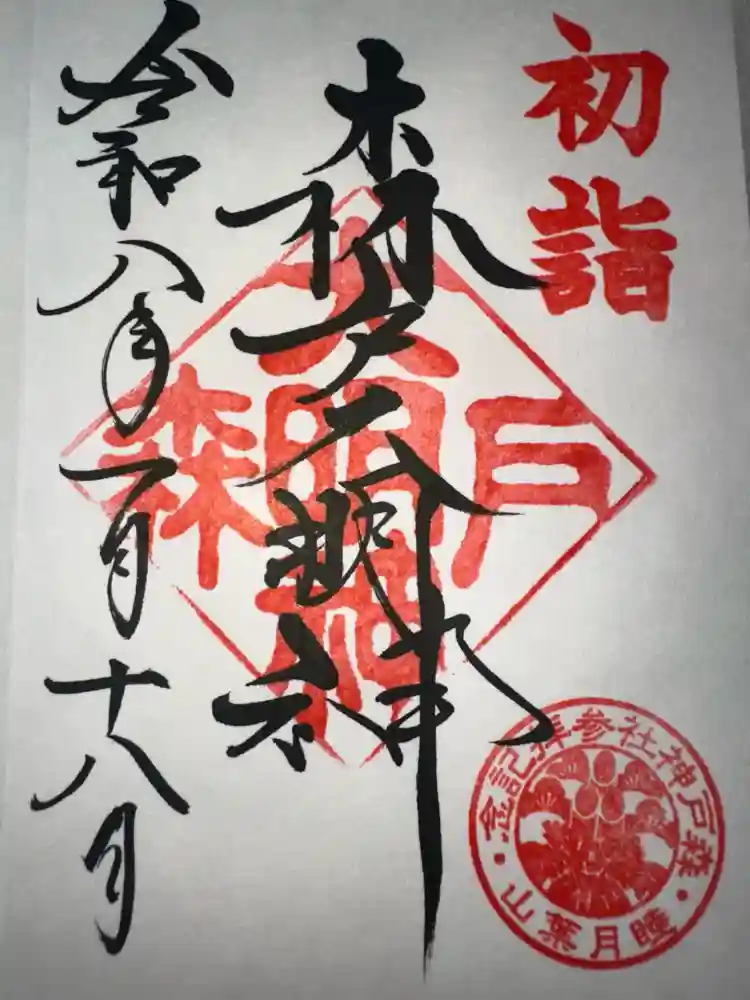 初詣
森戸大明神
令和八年一月十八日
森戸大明神
森戸神社参拝記念
睦月葉山